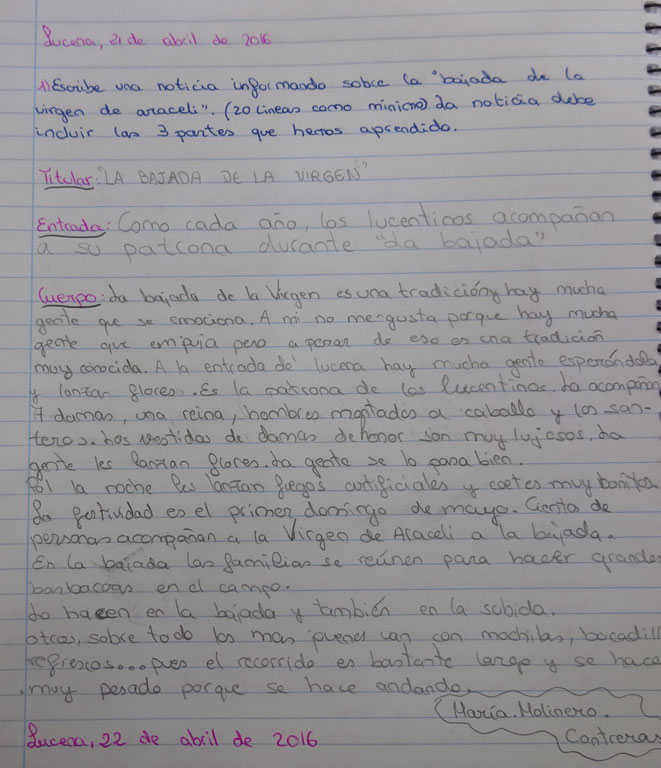 Lucena, 21 de abril de 2016
1) Escribe una noticia informando sobre la "bajada de la
virgen de araceli". (20 lineas como minicmo) La noticia debe
incluir las 3 partes que hemos aprendido.
Titular: "LA BAJADA DE LA VIRGEN"
Entrada: Como cada año, los lucentinos acompañan
a su patrona durante "La bajada"
Cuerpo: La bajada de la Virgen es una tradición y hay mucha
gente que se emociona. A mi no me gusta porque hay mucha
gente que empuja pero a pesar de eso es una tradición
muy conocida. A la entrada de lucena hay mucha gente esperándola
y lanzan flores. Es la patrona de los lucentinos. La acompañan
7 damas, una reina, hombres montados a caballo y los san-
teros. Los vestidos de damas de honor son muy lujosos. La
gente les lanzan flores. La gente se lo pasa bien.
Por la noche les lanzan fuegos artificiales y coetes muy bonitos.
La festividad es el primer domingo de mayo. Ciento de
personas acompañan a la Virgen de Araceli a la bajada.
En la bajada las familias se reúnen para hacer grandes
barbacoas en el campo.
Lo hacen en la bajada y también en la subida.
otros, sobre todo los mas jovenes van con mochilas, bocadill
refrescos... pues el recorrido es bastante largo y se hace
muy pesado porque se hace andando.
María Molinero.
Contreras
Lucena, 22 de abril de 2016